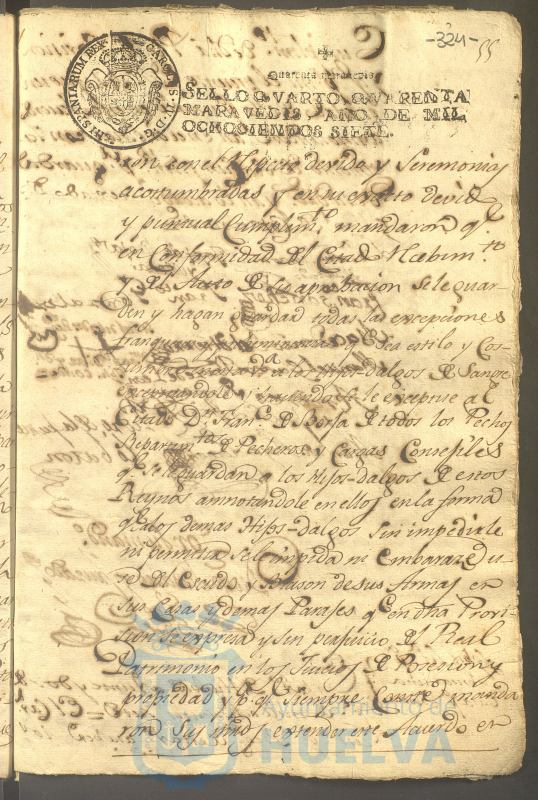 -324-
55
CAROLUS IV D.G. HISPANIARUM REX
Quarenta maravedis
SELLO QVARTO, QVARENTA
MARAVEDIS, AÑO DE MIL
OCHOCIENTOS SIETE.
con el Respecto devido y Seremonias
acostumbradas y en su efecto devido
y puntual Cumplim.to mandaron q.e
en Conformidad del Citado Recibim.to
y del Auto de su aprobacion se le guar-
den y hagan guardar todas las excepciones
franquezas q.e sea estilo y Cos-
a los Hijos-dalgos de Sangre
le exceptue al
Citado D.n Fran.co de Borja de todos los Pechos
de Pecheros y Cargas Consejiles
q.e se le guardan a los Hijos-dalgos de estos
Reynos annotandole en ellos en la forma
q.e a los demas Hijos-dalgos sin impedirle
ni permitir se le impida ni embaraze el u-
so del Escudo y Blason de sus Armas en
sus Casas y demas Parajes q.e en dha Provi-
sion se expresa y sin perjuicio del Real
Patrimonio en los Juicios de Posesion y
propiedad y p.a q.e siempre Conste manda-
ron sus m.des extender este Acuerdo en
Ayuntamiento de
HUELVA